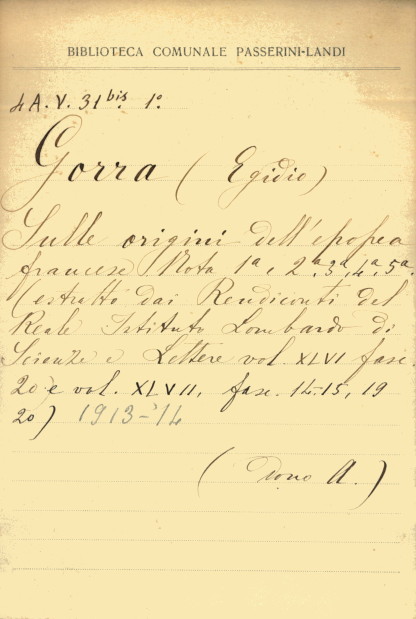 BIBLIOTECA COMUNALE PASSERINI-LANDI
4 A. V. 31 bis 1º
Gorra (Egidio)
Sulle origini dell'epopea
francese Nota 1ª e 2ª 3ª, 4ª, 5ª
(estratto dai Rendiconti del
Reale Istituto Lombardo di
Scienze e Lettere vol. XLVI fasc.
20 e vol. XLVII, fasc. 14-15, 19
20) 1913-'14
(dono A.)